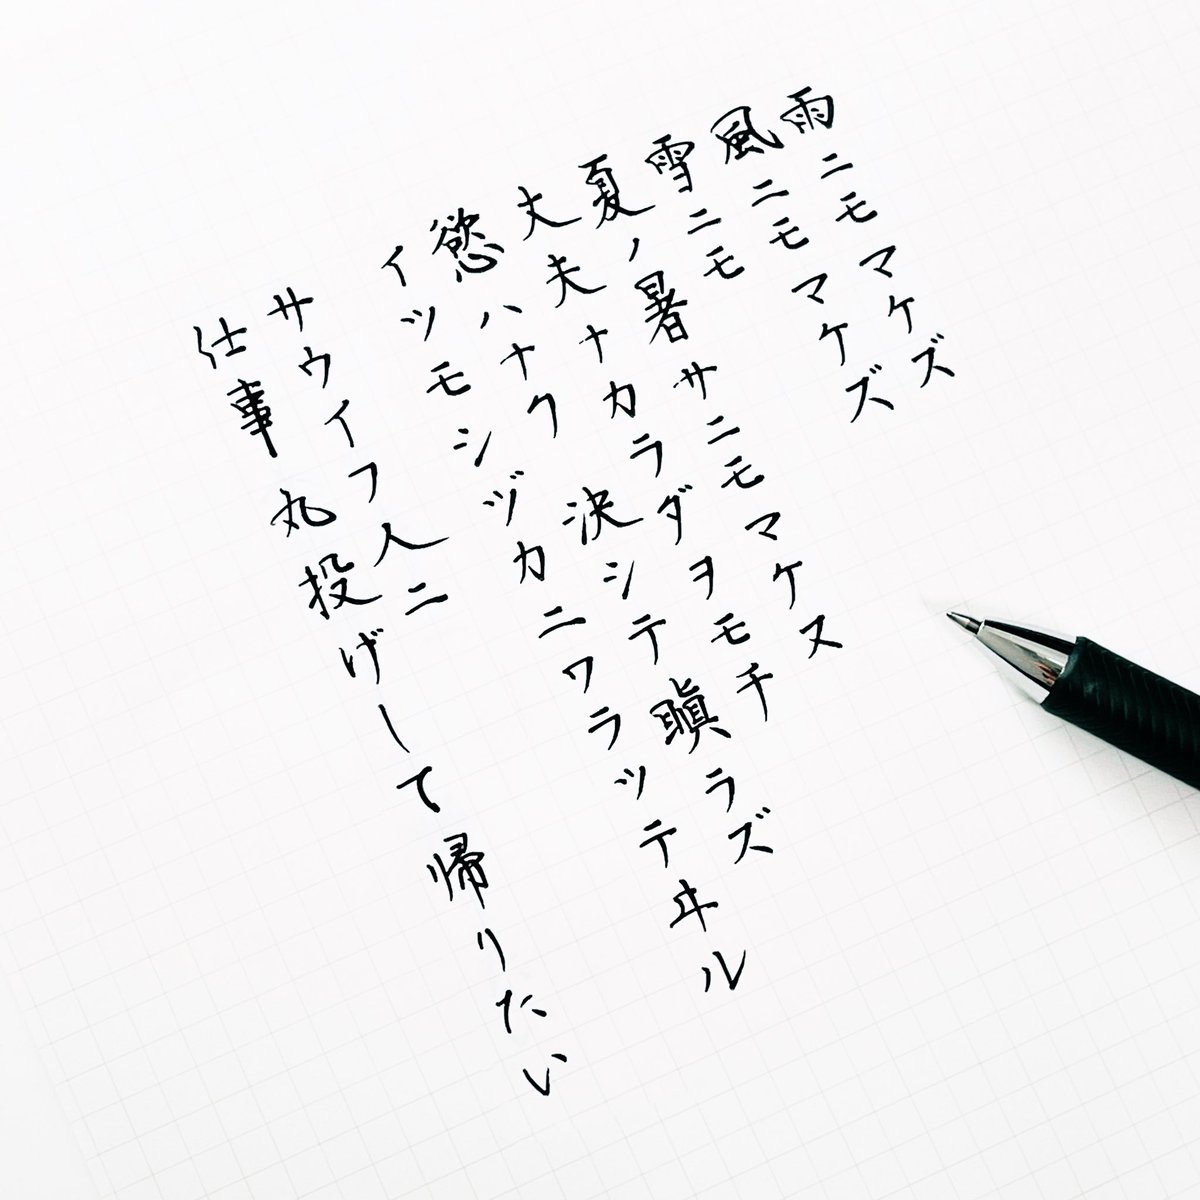 雨ニモマケズ
風ニモマケズ
雪ニモ
夏ノ暑サニモマケヌ
丈夫ナカラダヲモチ
慾ハナク 決シテ瞋ラズ
イツモシヅカニワラッテヰル
サウイフ人ニ
仕事丸投げして帰りたい